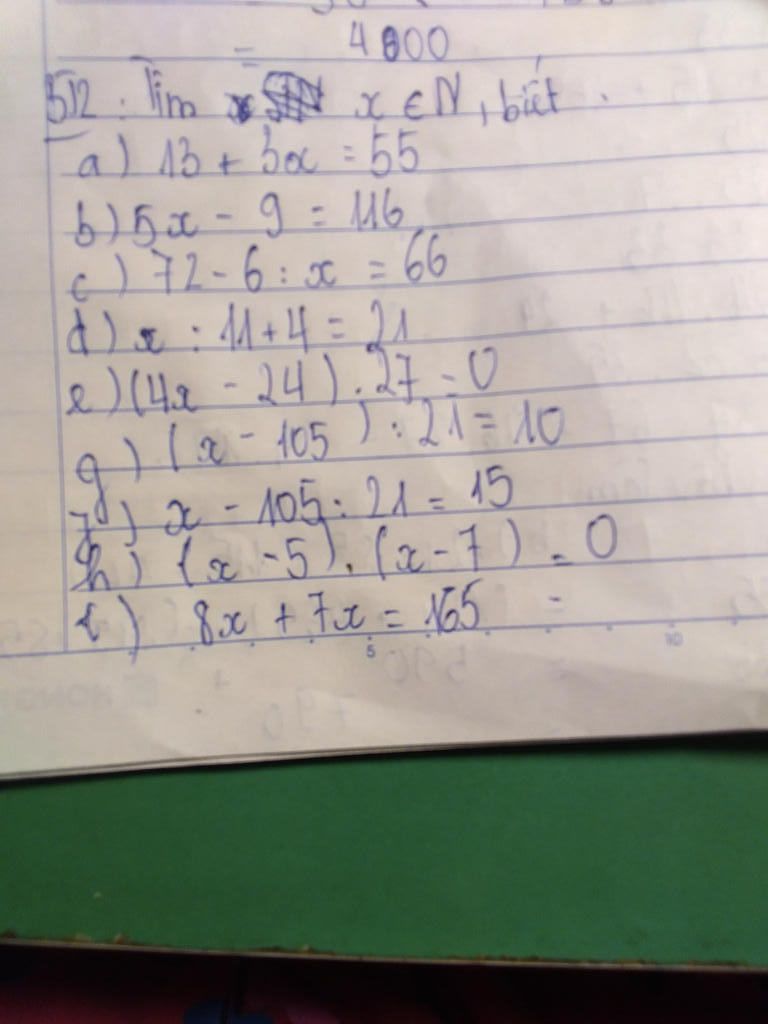 = 4000
512 : Tìm x ∈ N, biết.
a) 13 + 3x = 55
b) 5x - 9 = 116
c) 72 - 6 : x = 66
d) x : 11 + 4 = 21
e) (4x - 24) . 27 = 0
g) (x - 105) : 21 = 10
x - 105 : 21 = 15
h) (x - 5) . (x - 7) = 0
8x + 7x = 165 =
5 10